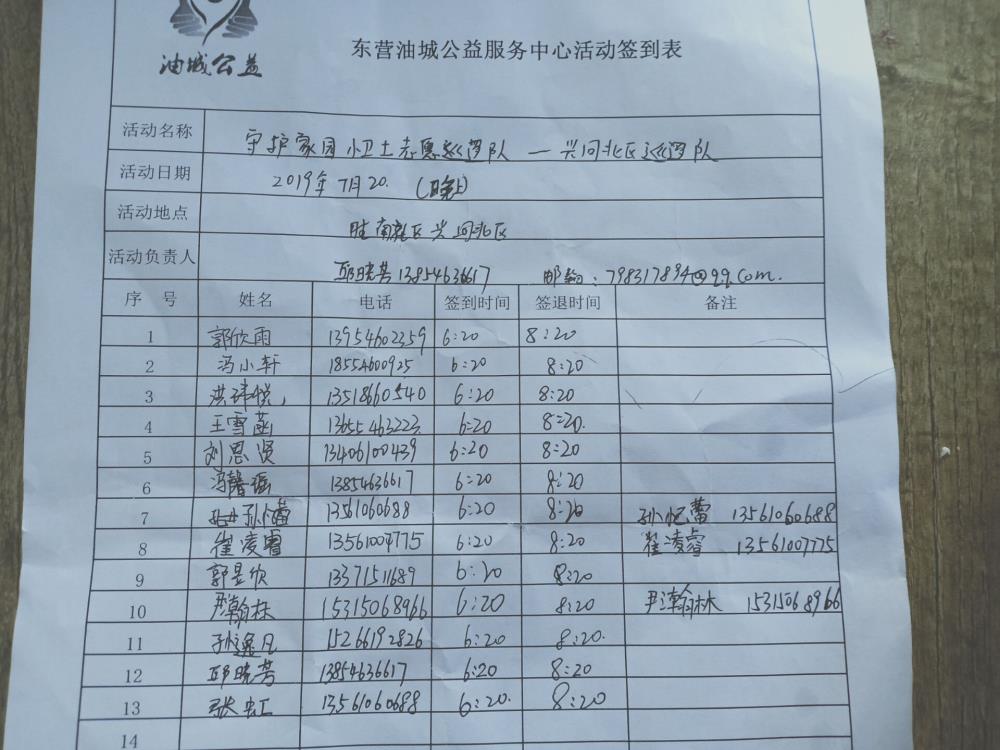 油城公益
东营油城公益服务中心活动签到表
活动名称 守护家园小卫士志愿巡逻队 — 兴河北区巡逻队
活动日期 2019年7月20. (晚上)
活动地点 胜南社区兴河北区
活动负责人 邱晓芳 13854636617 邮箱：798317894@qq.com.
序 号 姓名 电话 签到时间 签退时间 备注
1 郭欣雨 13954602359 6:20 8:20
2 冯小轩 18554600925 6:20 8:20
3 洪玮悦 13518660540 6:20 8:20
4 王雪菡 13655463223 6:20 8:20.
5 刘思贤 13406100439 6:20 8:20
6 冯馨瑶 13854636617 6:20 8:20
7 孙忆蕾 13561060688 6:20 8:20 孙忆蕾 13561060688
8 崔凌睿 13561007775 6:20 8:20 崔凌睿 13561007775
9 郭昱欣 13371511689 6:20 8:20
10 尹瀚林 15315068966 6:20 8:20 尹瀚林 15315068966
11 孙逸凡 15266192826 6:20 8:20.
12 邱晓芳 13854636617 6:20 8:20
13 张虹 13561060688 6:20. 8:20
14